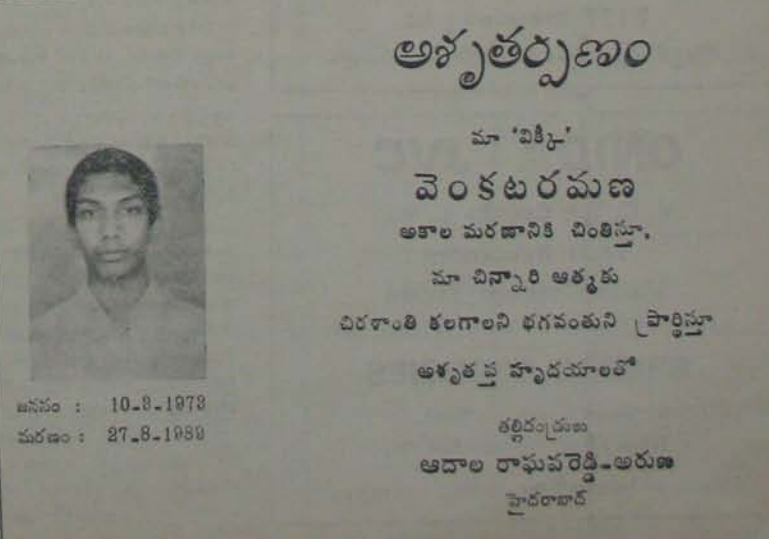 అశృతర్పణం
మా 'విక్కీ'
వెంకటరమణ
అకాల మరణానికి చింతిస్తూ,
మా చిన్నారి ఆత్మకు
చిరశాంతి కలగాలని భగవంతుని ప్రార్థిస్తూ
అశృతప్త హృదయాలతో
తల్లిదండ్రులు
ఆదాల రాఘవరెడ్డి-అరుణ
హైదరాబాద్
జననం : 10-3-1973
మరణం : 27-8-1989